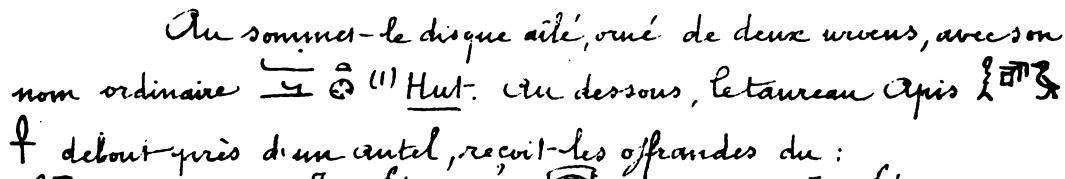 Au sommet le disque ailé, orné de deux urœus, avec son
nom ordinaire (1) Hut. Au dessous, le taureau Apis
debout près d'un autel, reçoit les offrandes du :